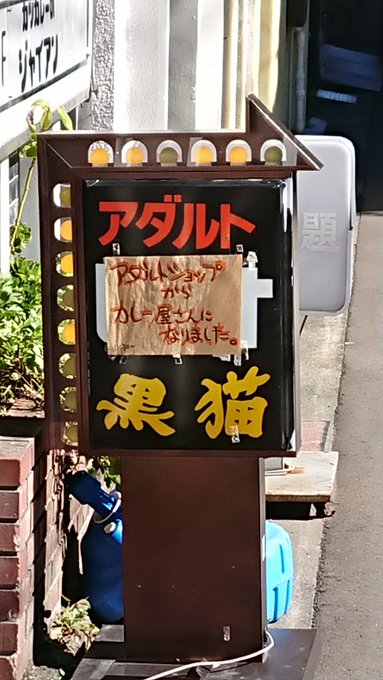 カツカレーの
ジャイアン
アダルト
アダルトショップ
から
カレー屋さんに
なりました。
黒猫
題